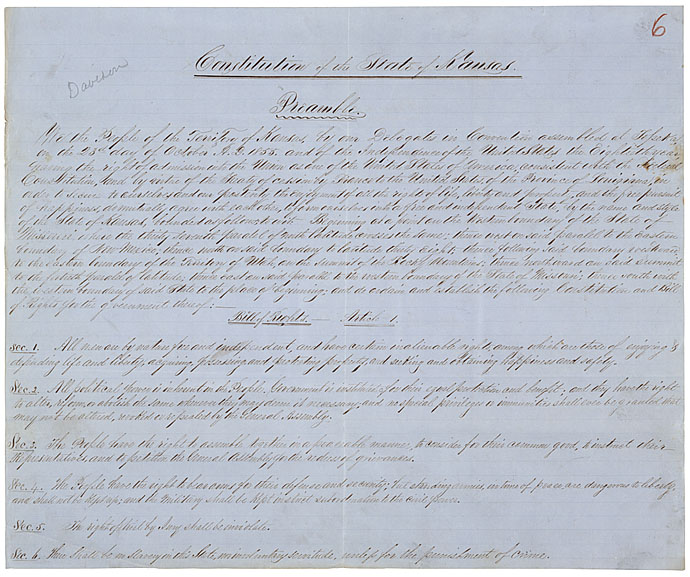 6
Constitution of the State of Kansas.
Davidson
Preamble.
We the People of the Territory of Kansas, by our Delegates in Convention assembled at Topeka
on the 23d day of October A.D. 1855, and of the Independence of the United States the Eightieth year
having the right of admission into the Union as one of the United States of America, consistent with the Federal
Constitution, and by virtue of the Treaty of cession by France to the United States of the Province of Louisiana, in
order to secure to ourselves and our posterity the enjoyment of all the rights of life, liberty and property, and the free pursuit
of happiness, do mutually agree with each other to form ourselves into a free and independent State, by the name and style
of the State of Kansas, bounded as follows to wit: Beginning at a point on the Western boundary of the State of
Missouri where the thirty seventh parallel of north latitude crosses the same; thence west on said parallel to the eastern
boundary of New Mexico; thence north on said boundary to latitude thirty eight; thence following said boundary westward
to the eastern boundary of the Territory of Utah, on the summit of the Rocky Mountains; thence northward on said summit
to the fortieth parallel of latitude; thence east on said parallel to the western boundary of the State of Missouri; thence south with
the western boundary of said State to the place of beginning; and do ordain and establish the following Constitution and Bill
of Rights for the government thereof:
Bill of Rights. Article 1.
Sec. 1. All men are by nature free and independent, and have certain inalienable rights, among which are those of enjoying &
defending life and liberty, acquiring, possessing and protecting property, and seeking and obtaining happiness and safety.
Sec. 2. All political power is inherent in the People. Government is instituted for their equal protection and benefit; and they have the right
to alter, reform or abolish the same whenever they may deem it necessary; and no special privileges or immunities shall ever be granted that
may not be altered, revoked or repealed by the General Assembly.
Sec. 3. The People have the right to assemble together in a peaceable manner, to consult for their common good, to instruct their
Representatives, and to petition the General Assembly for the redress of grievances.
Sec. 4. The People have the right to bear arms for their defense and security; but standing armies, in time of peace, are dangerous to liberty,
and shall not be kept up; and the military shall be kept in strict subordination to the civil power.
Sec. 5. The right of trial by Jury shall be inviolate.
Sec. 6. There shall be no Slavery in this State, nor involuntary servitude, unless for the punishment of crime.